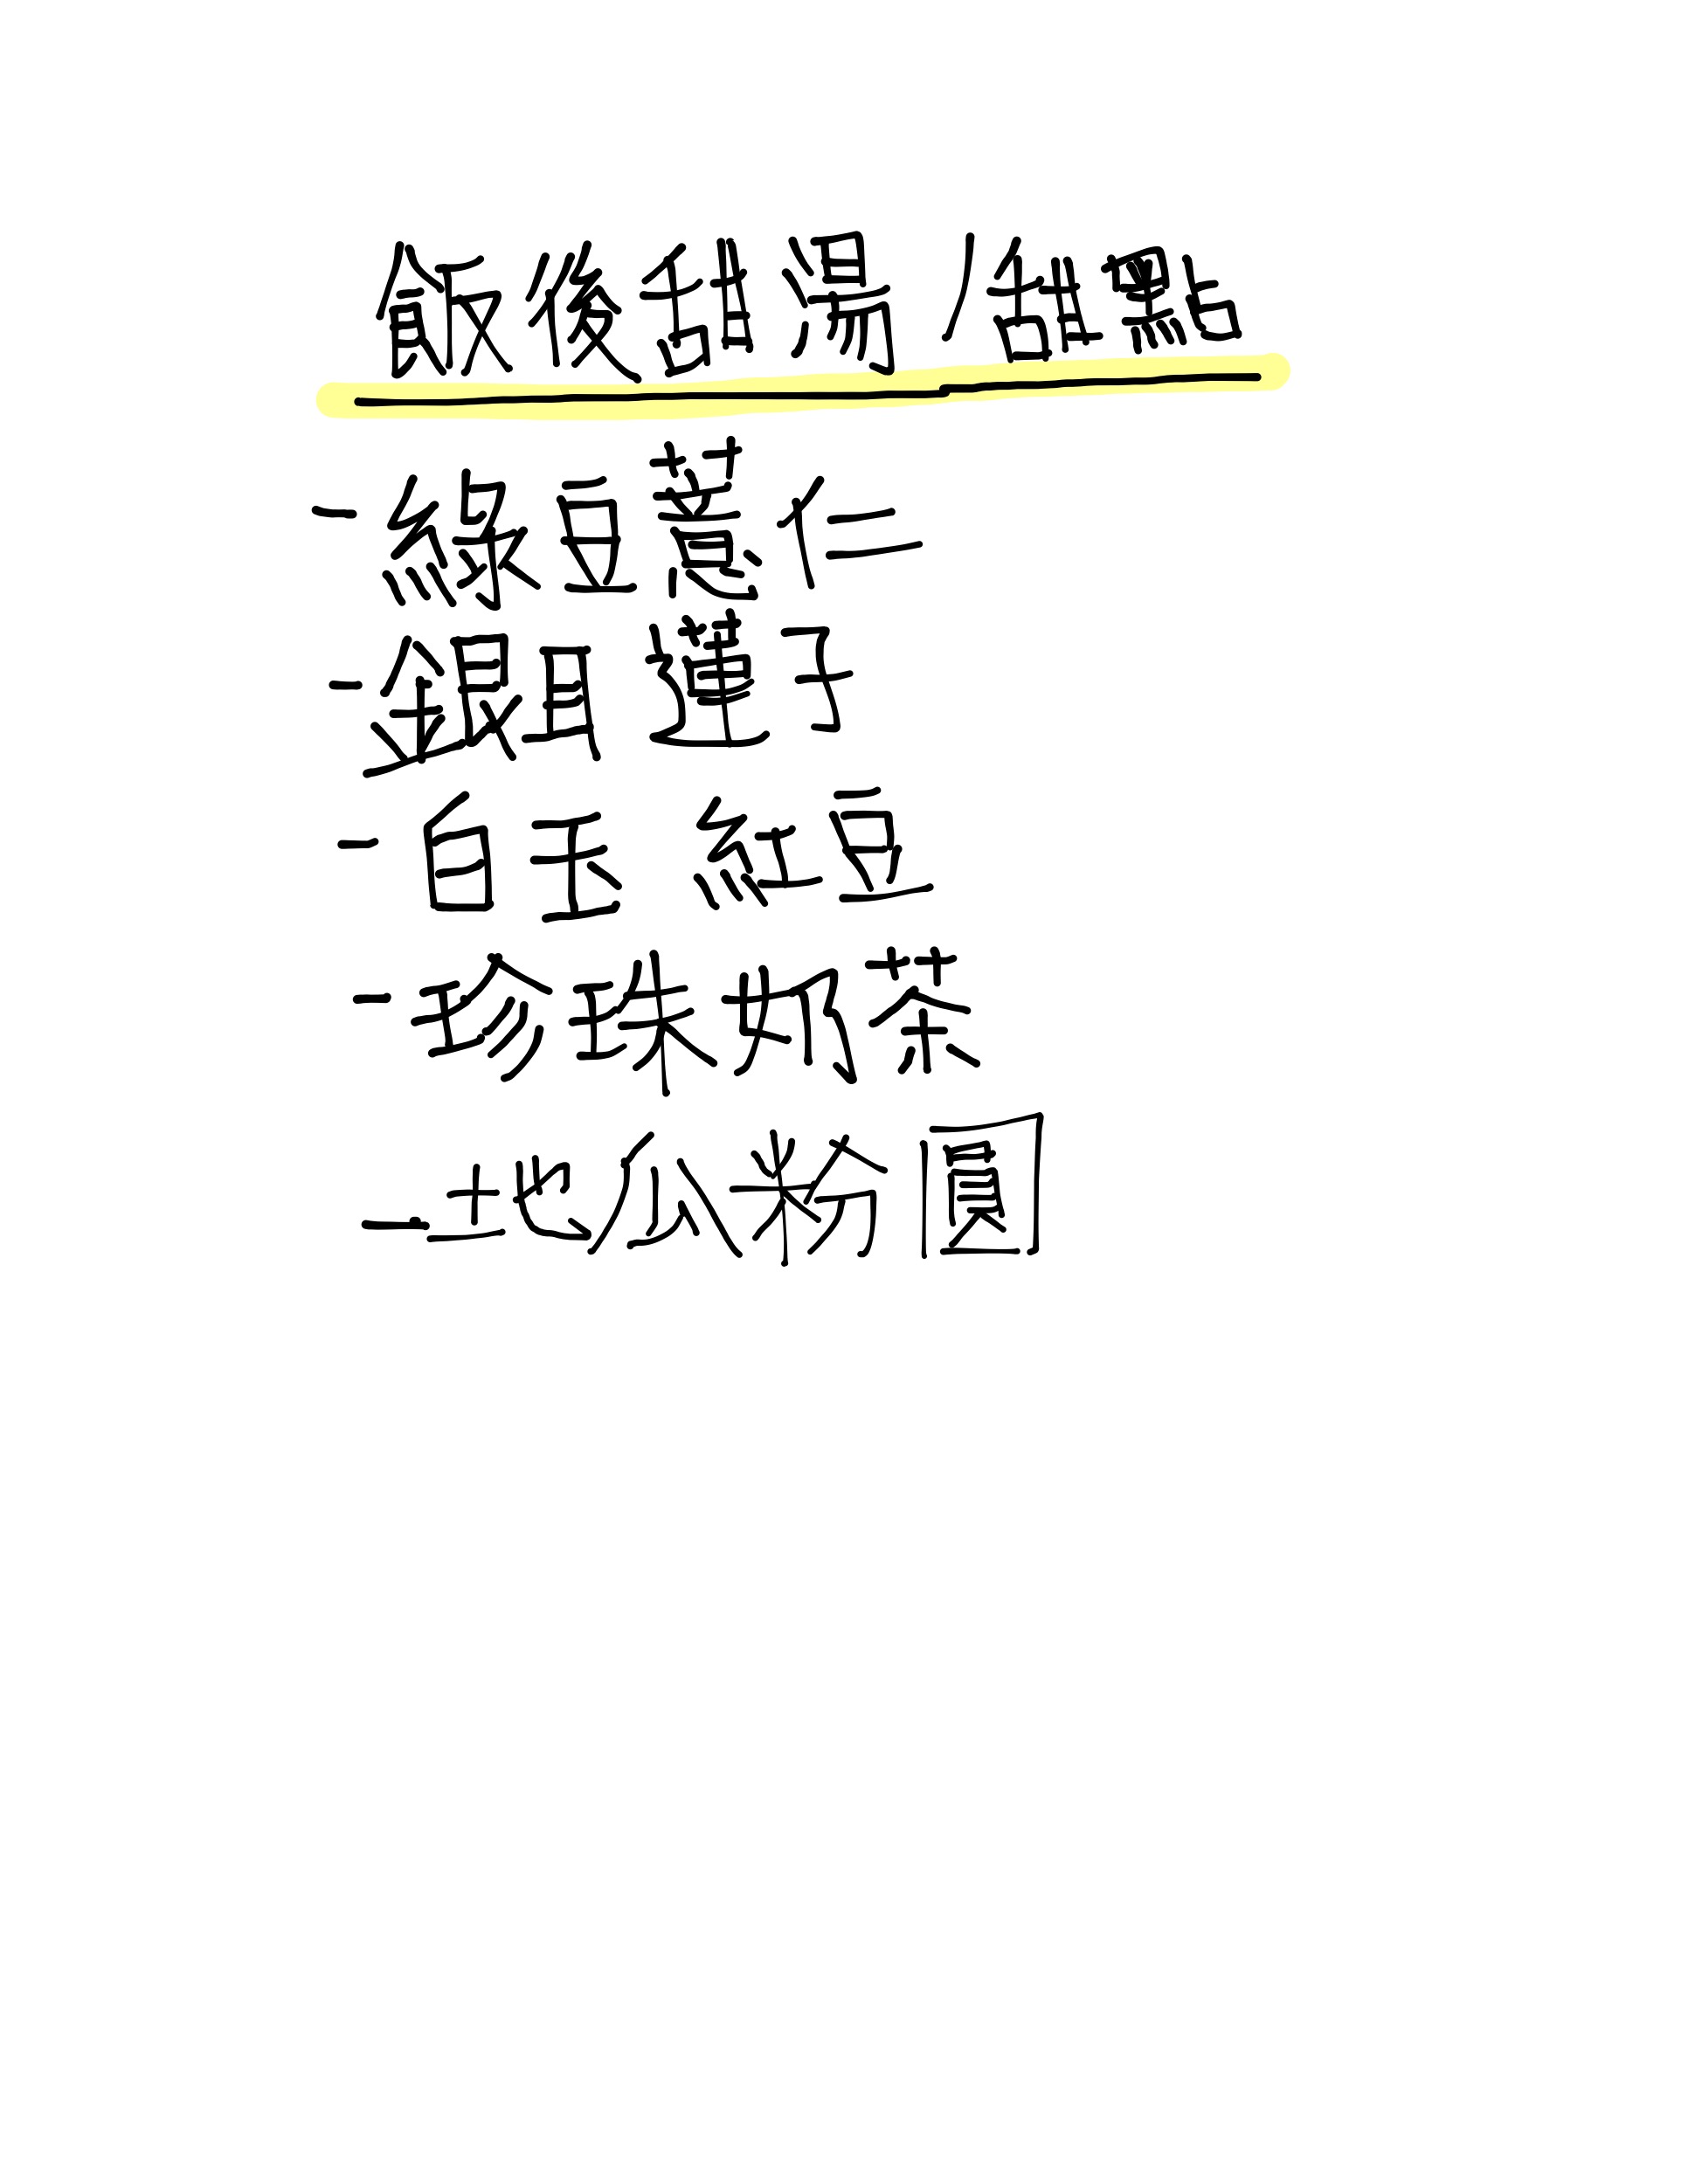 飯後甜湯/甜點
- 綠豆薏仁
- 銀耳蓮子
- 白玉 紅豆
- 珍珠奶茶
- 地瓜粉圓